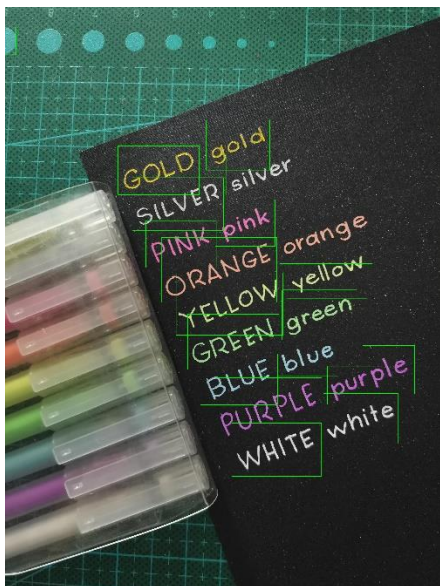 GOLD gold
SILVER silver
PINK pink
ORANGE orange
YELLOW yellow
GREEN green
BLUE blue
PURPLE purple
WHITE white